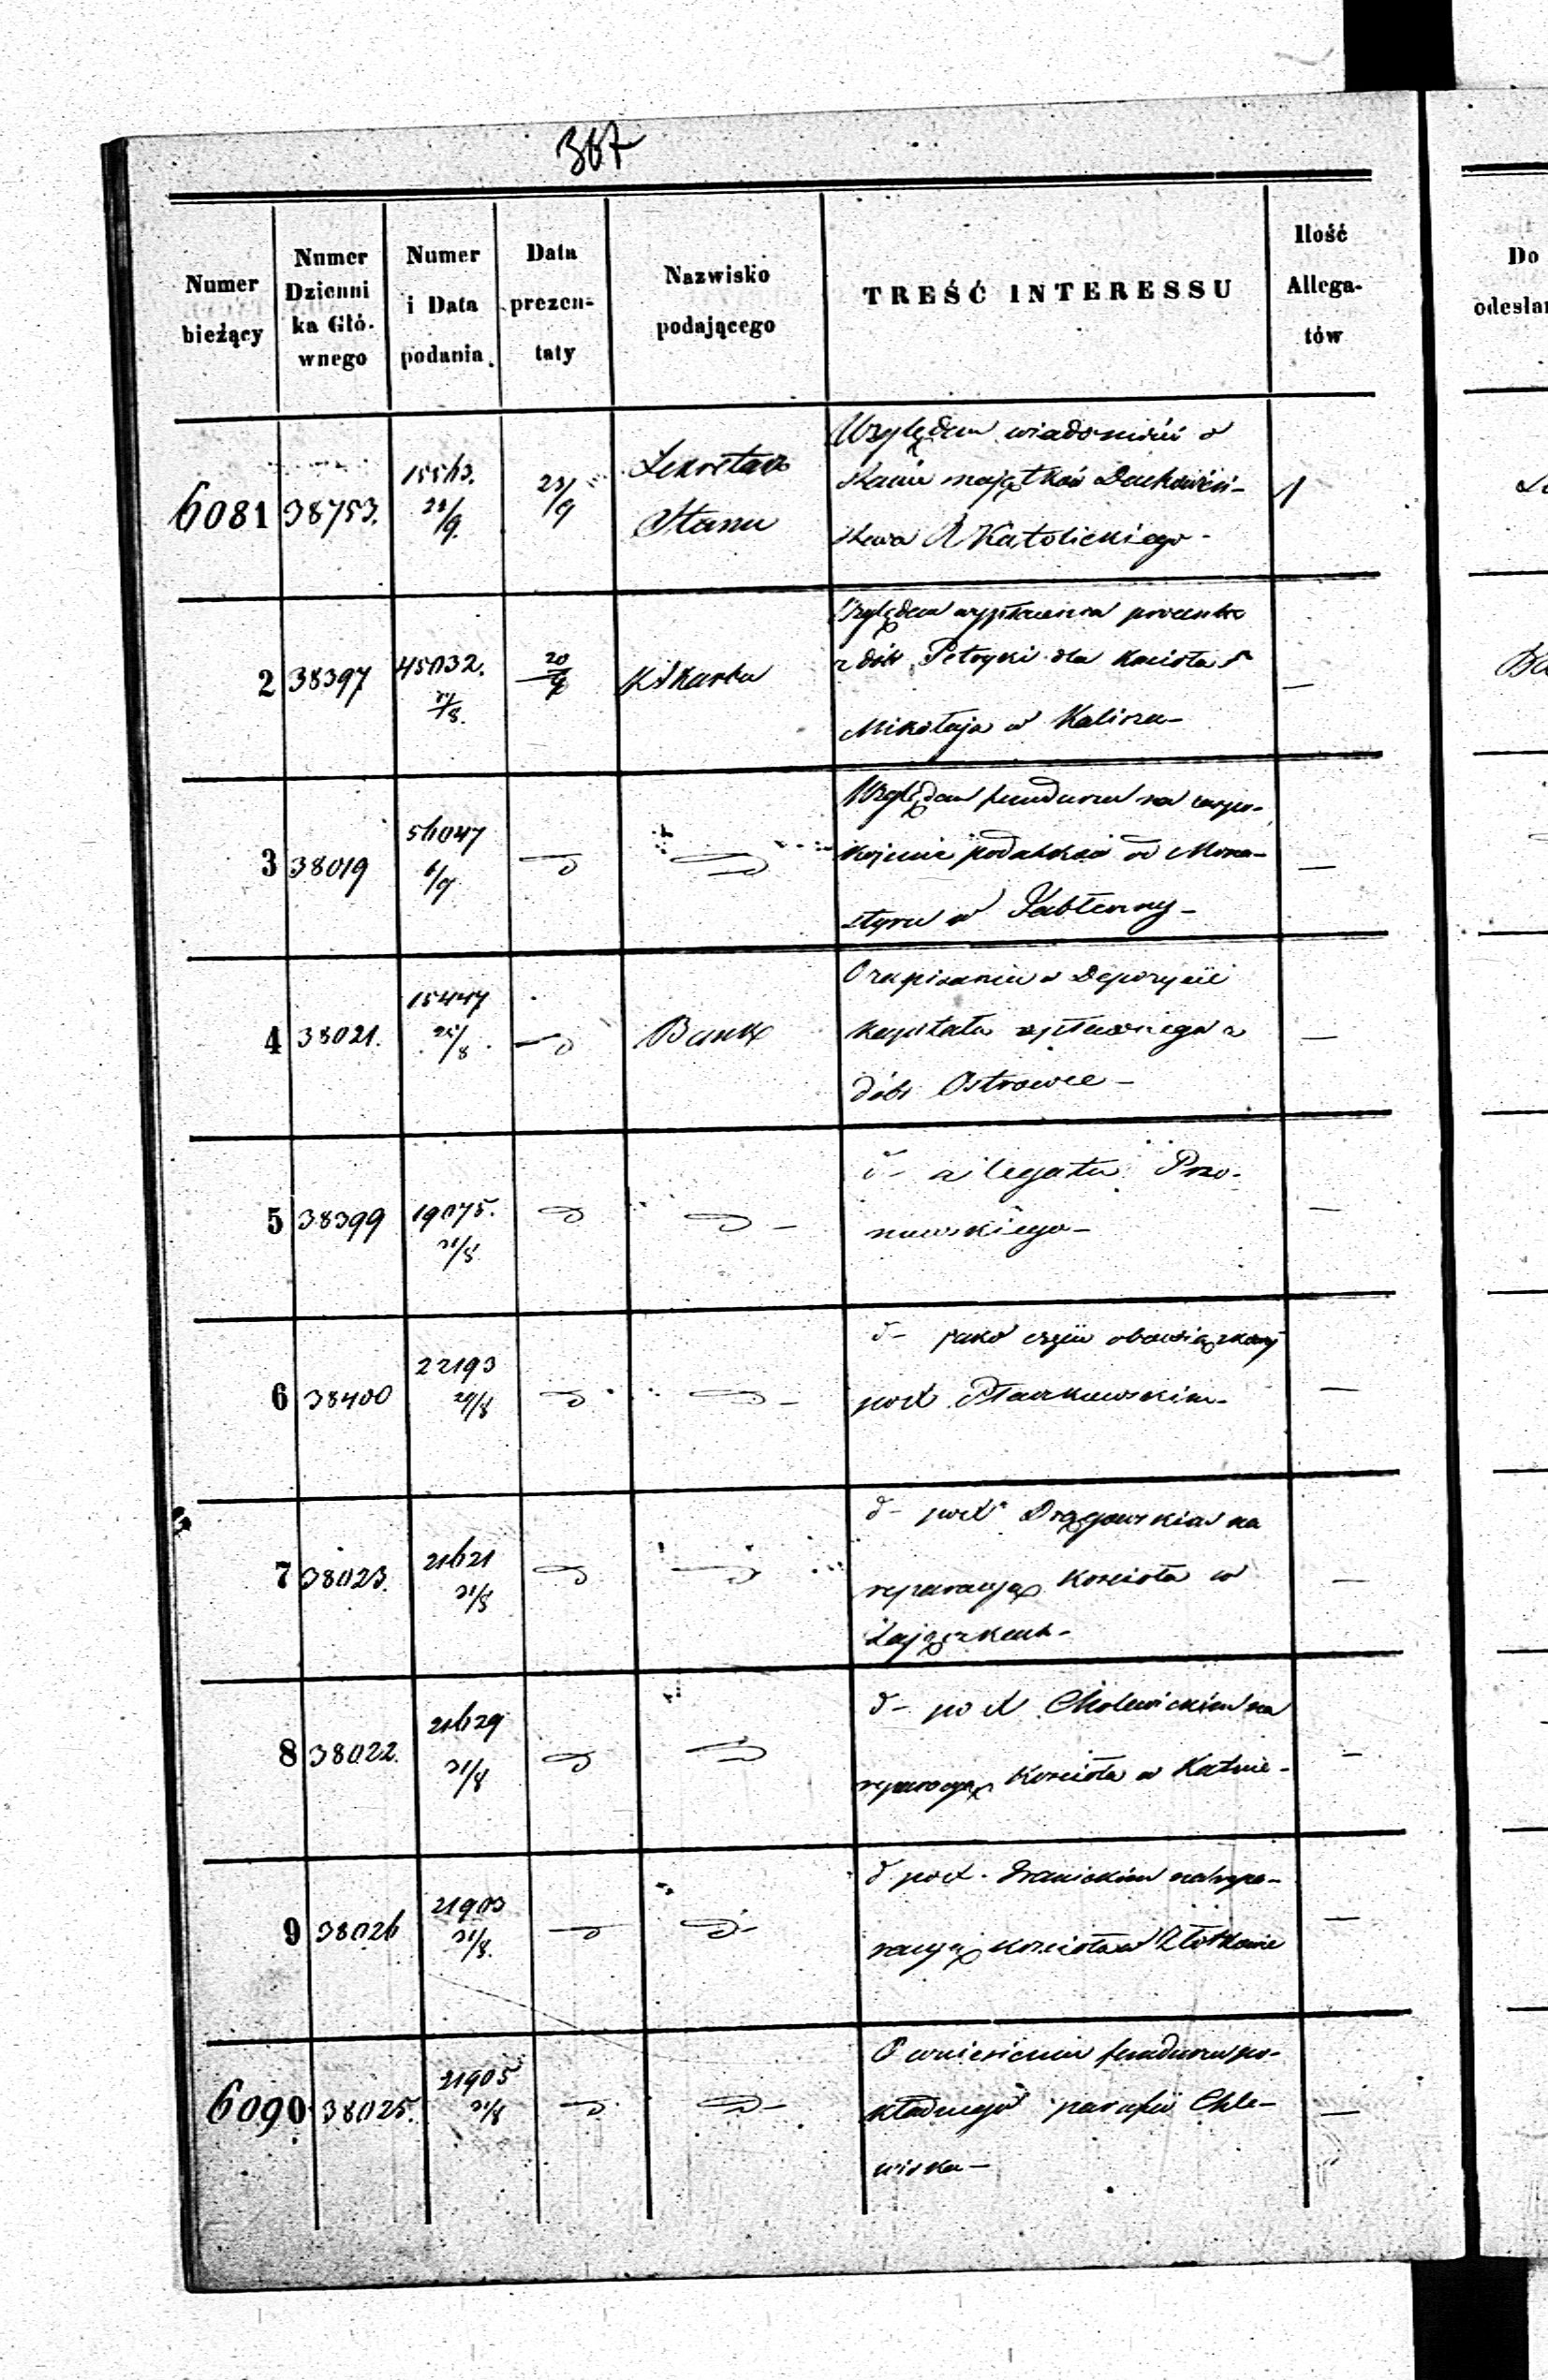 307
Numer bieżący
Numer Dzienni ka Głó- wnego
Numer i Data podania.
Data prezen- taty
Nazwisko podającego
TREŚĆ INTERESSU
Ilość Allega- tów
Do
odesłan
6081 38753. 15563. 22/9. 23/9 Sekretarz Stanu
Względem wiadomości o
stanie majątków Duchowień-
stwa R Katolickiego - 1
2 38397 45032. 31/8. 20/9 K Skarbu
Względem wypłacenia procentu
z dóbr Petryki dla kościoła S
Mikołaja w Kaliszu - —
3 38019 56047 6/9
Względem funduszu na zaspo-
kojenie podatków od Mona-
styru w Jabłeczny - —
4 38021. 15447 25/8 Bank
O zapisaniu w Depozycie
kapitału spłaconego z
dóbr Ostrowce - —
5 38399 19075. 31/8
d- z legatu
nowskiego - —
6 38400 22193 29/8
d- jako części obowiązkowej
pod —
7 38023. 21621 31/8
d- pod Drągowskim na
reparacyą Kościoła w
—
8 38022. 21629 31/8
d- pod Cholewickim na
reparacyą Kościoła w —
9 38026 21903 31/8.
d pod na repa-
racyą kościoła w Złotkowie —
6090 38025. 21905 31/8
O wniesieniu funduszu po-
kładnego parafii Chle-
wiska - —